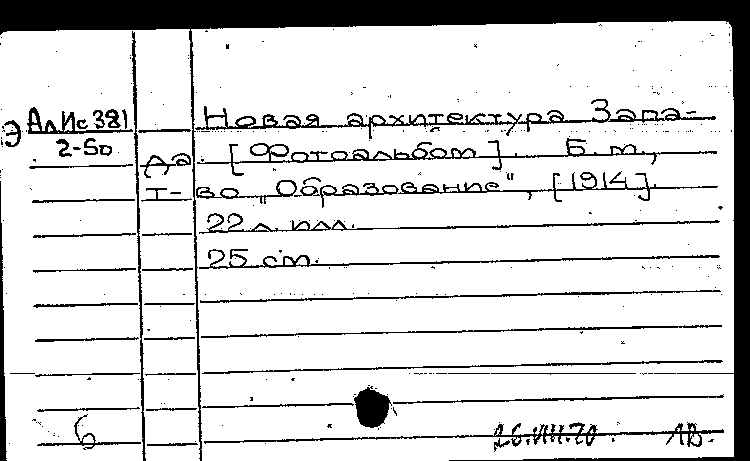 Э АлИс381 Новая архитектура Запа-
2-50 да. [Фотоальбом]. Б.m.,
т-во "Образование", [1914].
22 л. илл.
25 cm.
6 26.VIII.70. ЛВ.